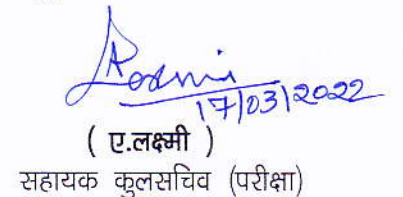 17/03/2022
( ए.लक्ष्मी )
सहायक कुलसचिव (परीक्षा)